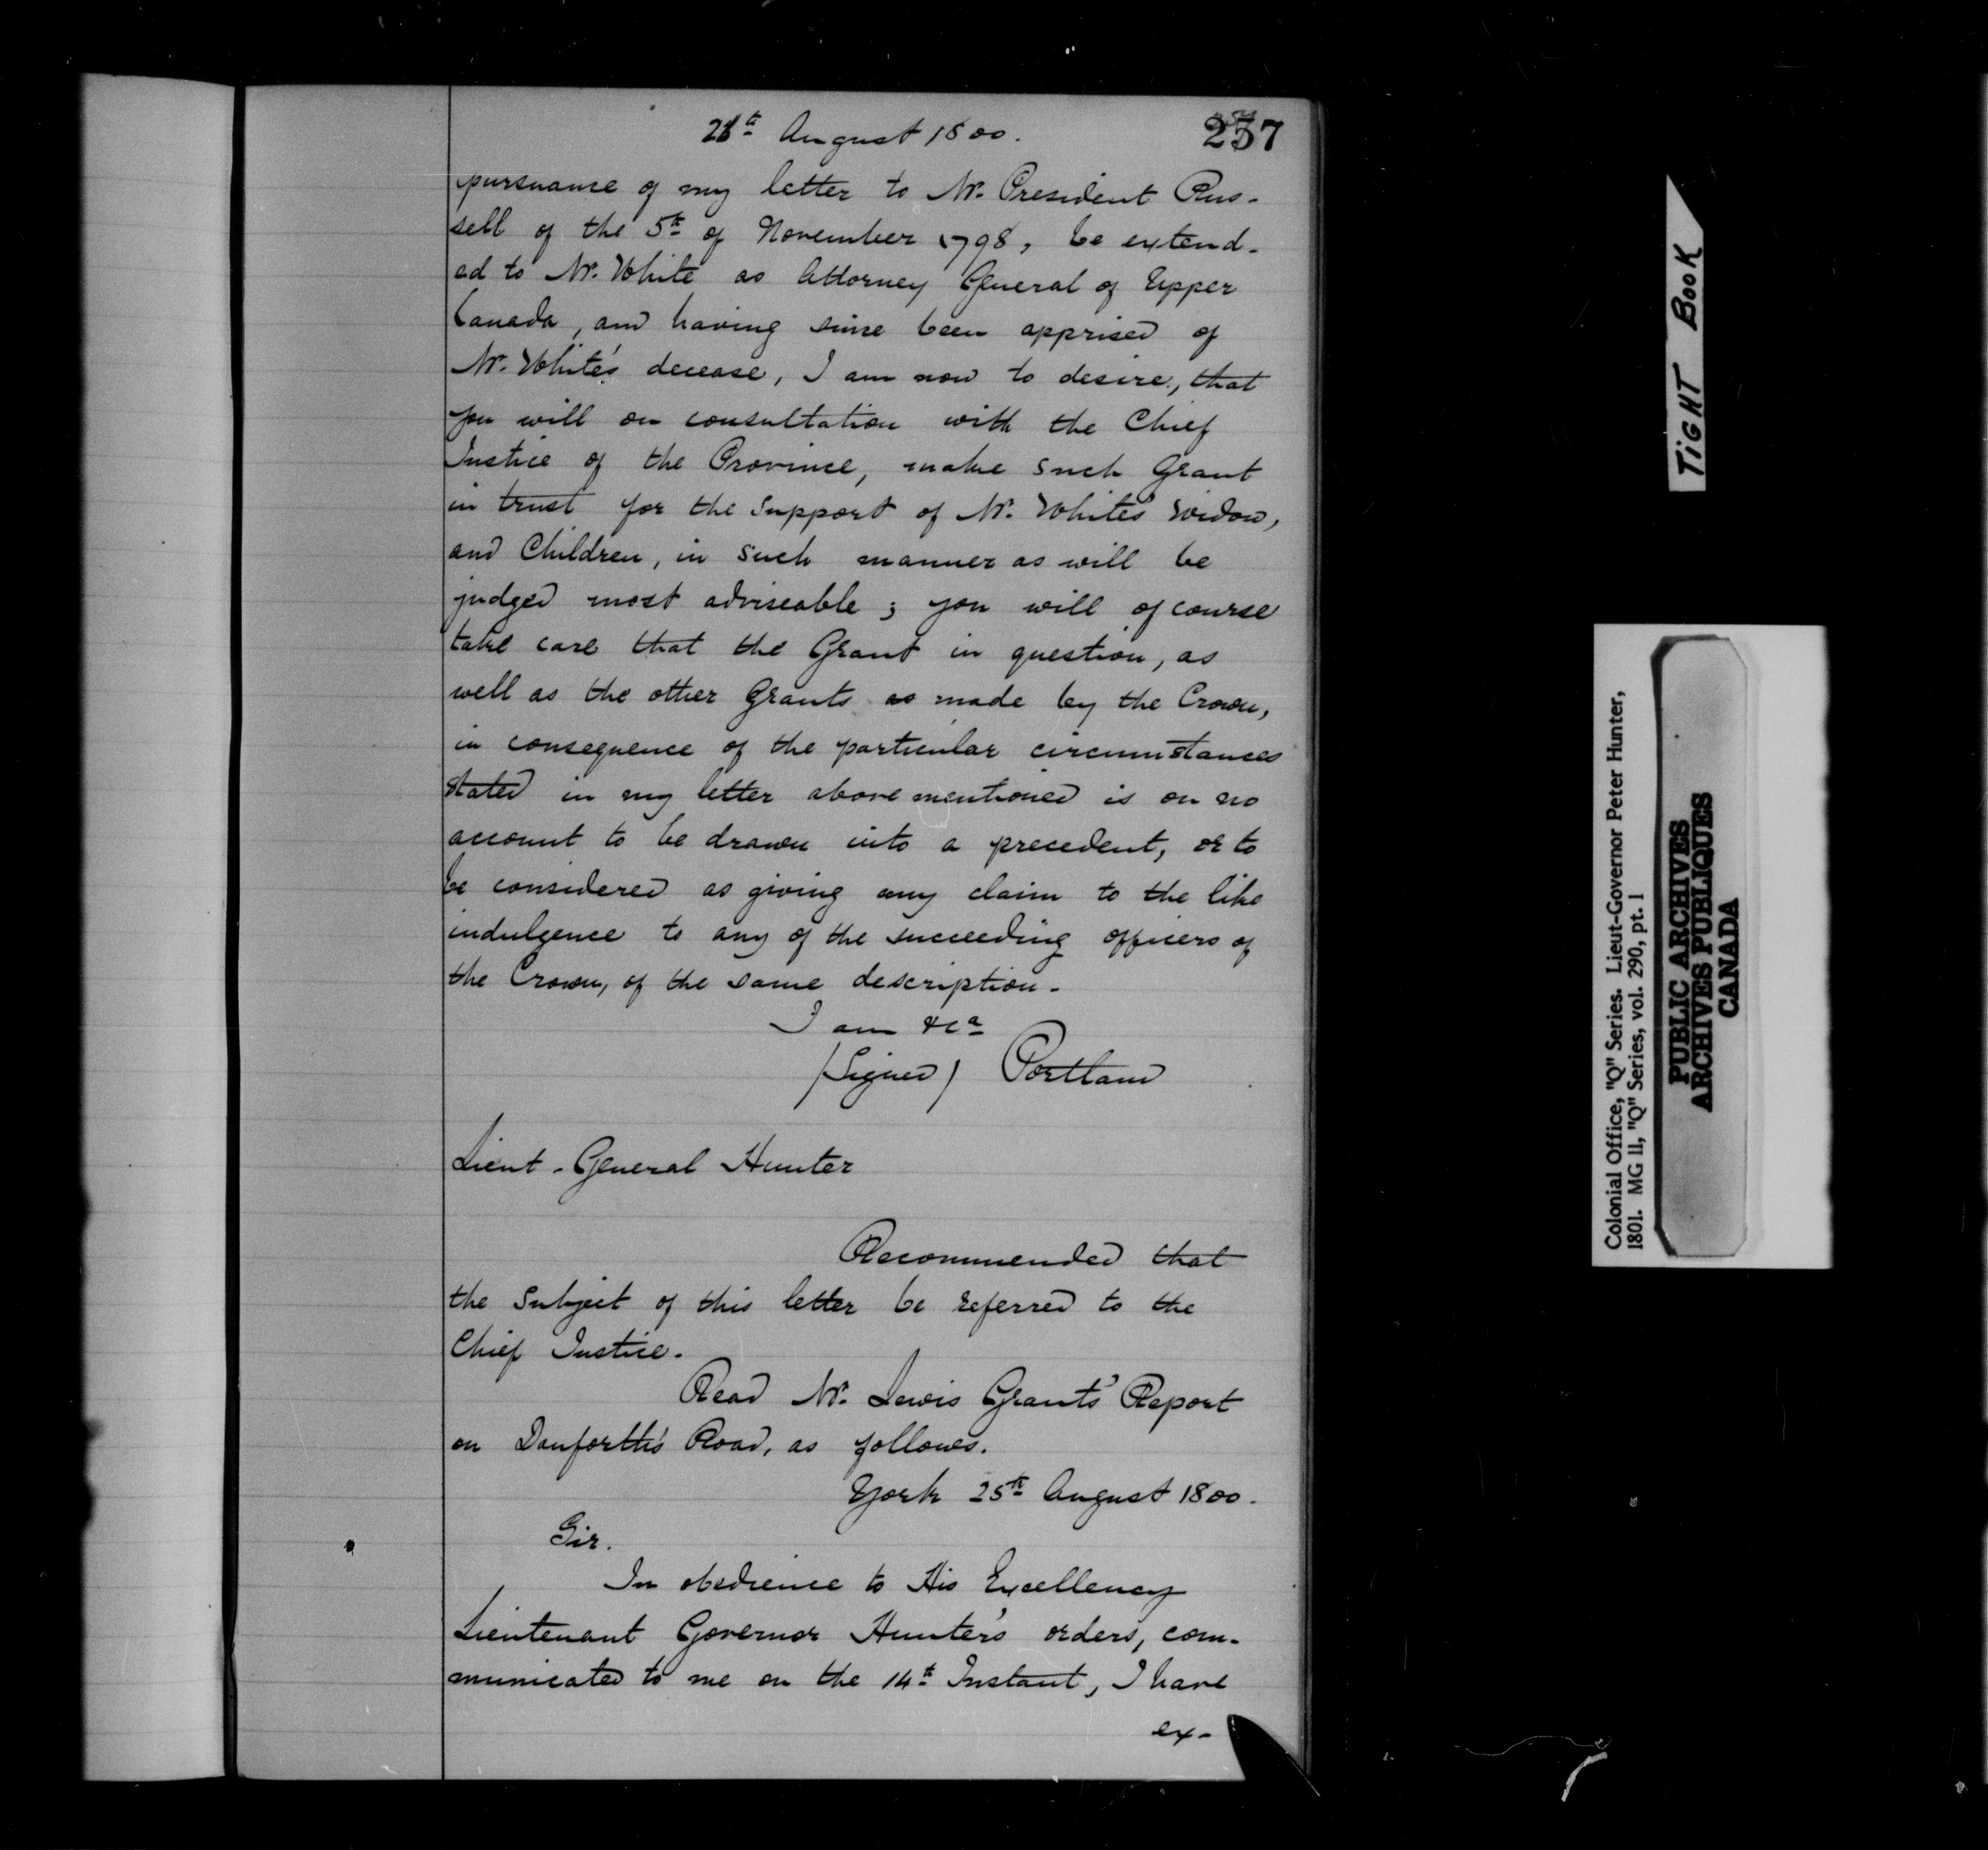 28th August 1800.
237
pursuance of my letter to Mr. President Rus-
sell of the 5th of November 1798, be extend-
ed to Mr. White as Attorney General of Upper
Canada, and having since been apprised of
Mr. White's decease, I am now to desire, that
you will on consultation with the Chief
Justice of the Province, make such Grant
in trust for the support of Mr. White's Widow,
and Children, in such manner as will be
judged most adviseable; you will of course
take care that the Grant in question, as
well as the other Grants as made by the Crown,
in consequence of the particular circumstances
stated in my letter above mentioned is on no
account to be drawn into a precedent, or to
be considered as giving any claim to the like
indulgence to any of the succeeding officers of
the Crown, of the same description.
I am &ca
(Signed) Portland
Lieut-General Hunter
Recommended that
the Subject of this letter be referred to the
Chief Justice.
Read Mr. Lewis Grant's Report
on Danforth's Road, as follows.
York 25th August 1800.
Sir.
In obedience to His Excellency
Lieutenant Governor Hunter's orders, com-
municated to me on the 14th Instant, I have
ex-
TIGHT BOOK
Colonial Office, "Q" Series. Lieut-Governor Peter Hunter,
1801. MG 11, "Q" Series, vol. 290, pt. 1
PUBLIC ARCHIVES
ARCHIVES PUBLIQUES
CANADA